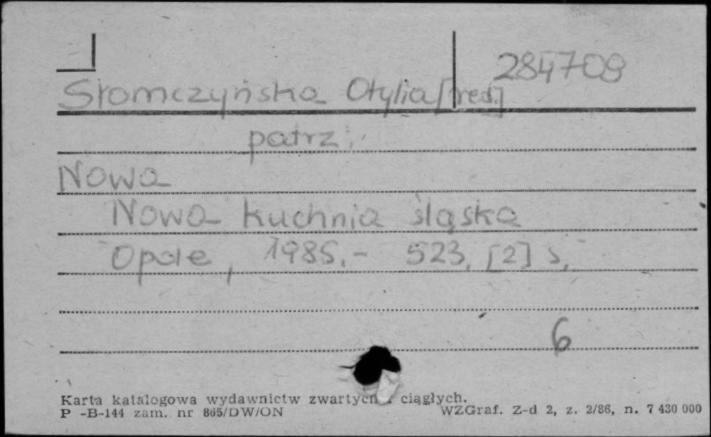 284708
Słomczyńska Otylia [red.]
patrz:
Nowa
Nowa kuchnia śląska
Opole, 1985.- 523, [2] s.
6
Karta katalogowa wydawnictw zwartych i ciągłych.
P -B-144 zam. nr 865/DW/ON WZGraf. Z-d 2, z. 2/86, n. 7 430 000